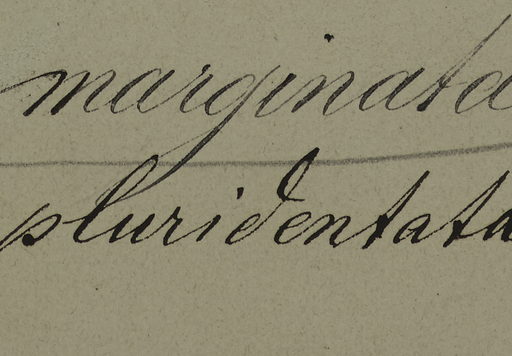 marginata
pluridentata